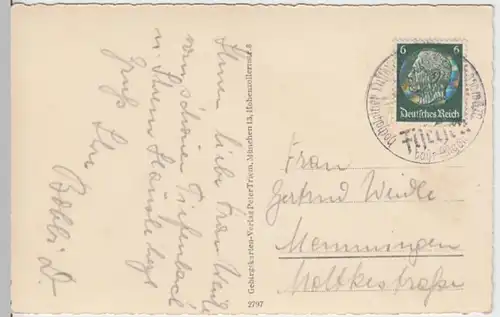 Ihnen, liebe Frau Weidle
vom schönen Tiefenbach
u. Ihrem Häusle herzl.
Gruß Ihre
Bobbi D.
Gebirgskarten-Verlag Peter Triem, München 13, Hohenzollernstr.
2797
6 6
Deutsches Reich
Frau
Gertrud Weidle
Memmingen
Moltkestraße